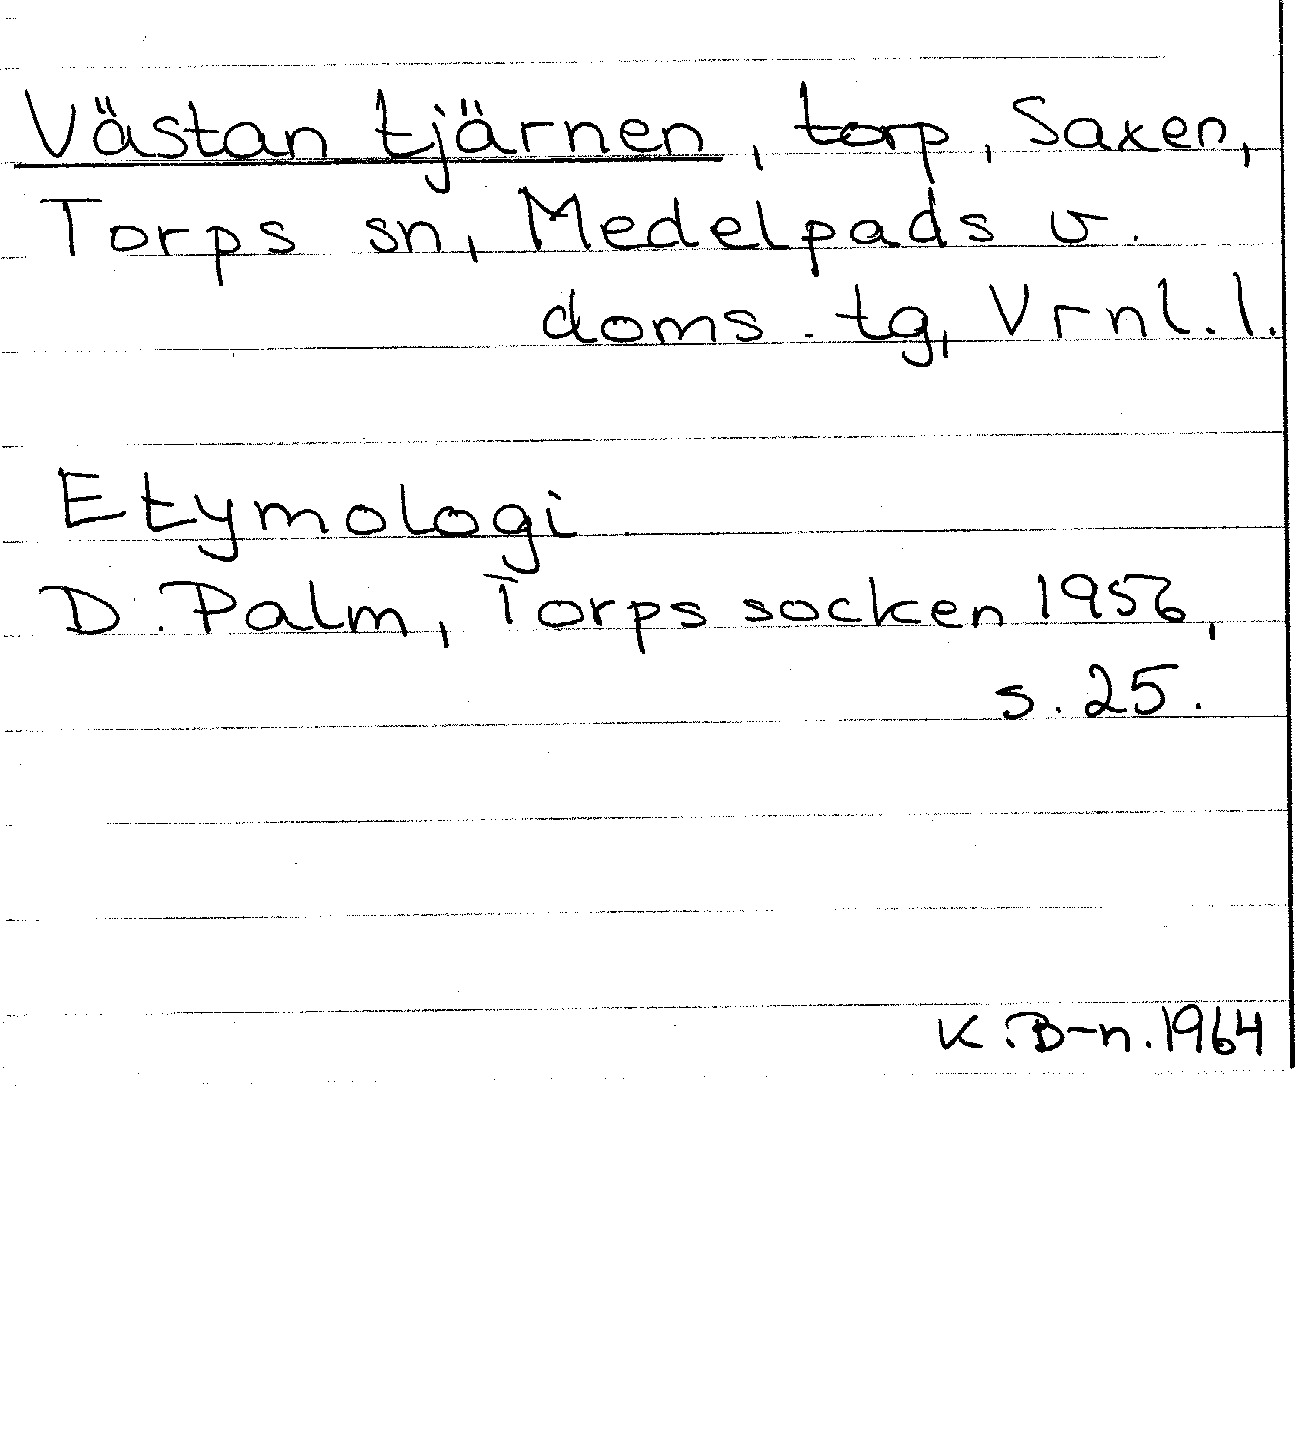 Västan tjärnen, torp, Saxen,
Torps sn, Medelpads v.
doms. tg, Vrnl. l.
Etymologi
D. Palm, Torps socken 1956,
s. 25.
K. B-n. 1964